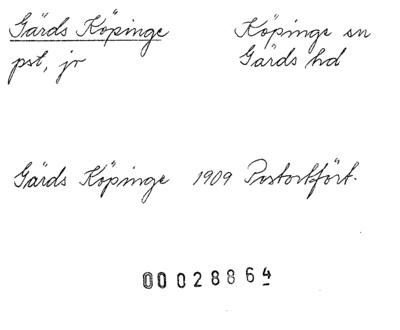 Gärds Köpinge Köpinge sn
pst, jr Gärds hd
Gärds Köpinge 1909 Postortfört.
00028864